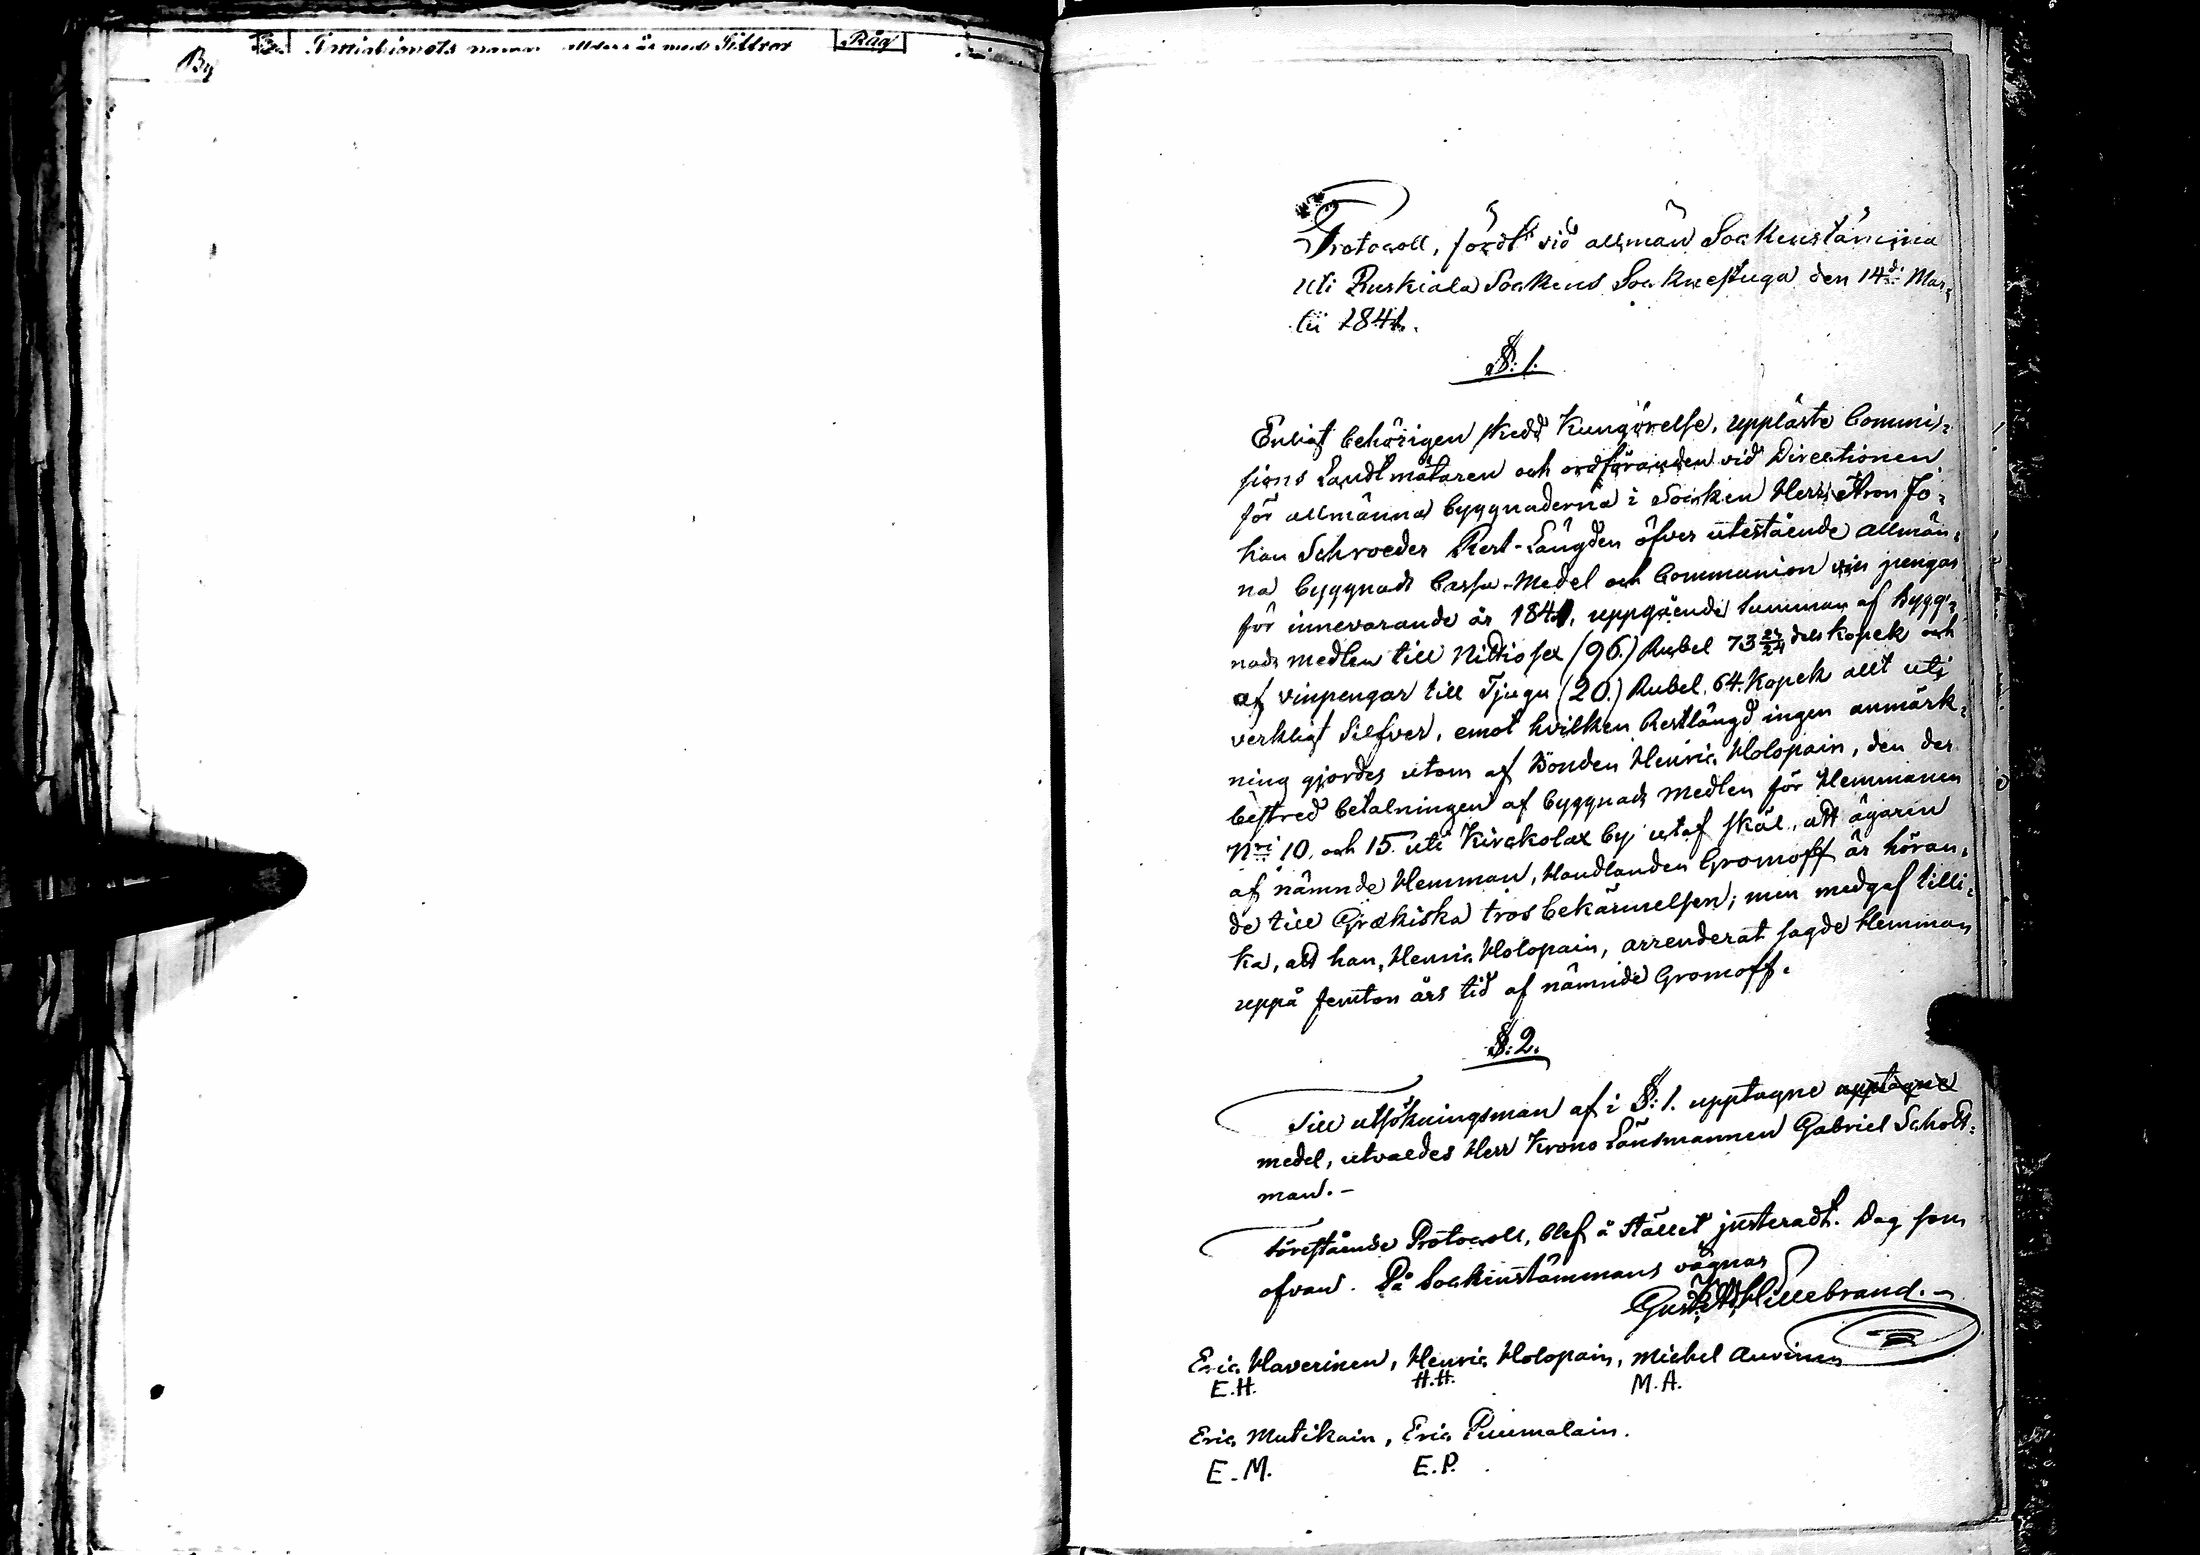 By
namn
Råg
Protocoll, fördt vid allmän Sockenstämma
uti Ruskiala Sockens Socknestuga den 14d: Mar,
tii 1841.
§: 1.
Enligt behörigen skedd Kungörelse, uppläste Commis,
sions Landtmätaren och ordföranden vid Directionen
för allmänna byggnaderna i Socken Herr Aron Jo,
han Schroeder Rest-Längden öfver utestående allmän,
na byggnads Cassa-Medel och Communion vin pengar
för innevarande år 1841, uppgående summan af bygg,
nads medlen till Nittiosex (96.) Rubel 73 23/24 dels kopek och
af vinpengar till Tjugu (20.) Rubel 64. Kopek allt uti
verkligt Silfver, emot hvilken Restlängd ingen anmärk,
ning gjordes utom af Bonden Henric Holopain, den der
bestred betalningen af byggnads medlen för Hemmanen
Nri 10. och 15. uti Kirckolax by utaf skäl, att ägaren
af nämnde Hemman, Handlanden Gromoff är höran,
de till Grækiska trosbekännelsen; men medgaf tilli,
ka, att han, Henric Holopain, arrenderat sagde Hemman
uppå femton års tid af nämnde Gromoff.
§: 2.
Till utsökningsman af i §: 1. upptagne upptagne
medel, utvaldes Herr Krono Länsmannen Gabriel Schott,
man. -
Förestående Protocoll, blef å stället justeradt. Dag som
ofvan. På Sockenstämmans vägnar
Gust: Ad: Hillebrand. -
Eric Haverinen, Henric Holopain, Michel Auvinen
E.H. H.H. M.A.
Eric Mutikain, Eric Puumalain.
E.M. E.P.